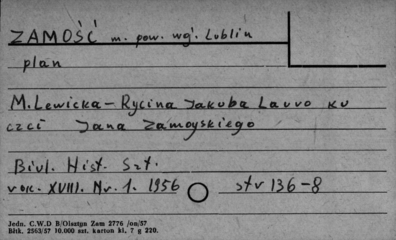 ZAMOŚĆ m. pow. wg. Lublin
plan
M. Lewicka – Rycina Jakuba Lavvo ku
czci Jana Zamoyskiego
Biul. Hist. Szt.
rok. XVIII. Nr. 1. 1956 str 136-8
Jedn. C.W.D B/Olsztyn Zam 2776 /on/57
Bltk. 2563/57 10.000 szt. karton kl. 7 g 220.